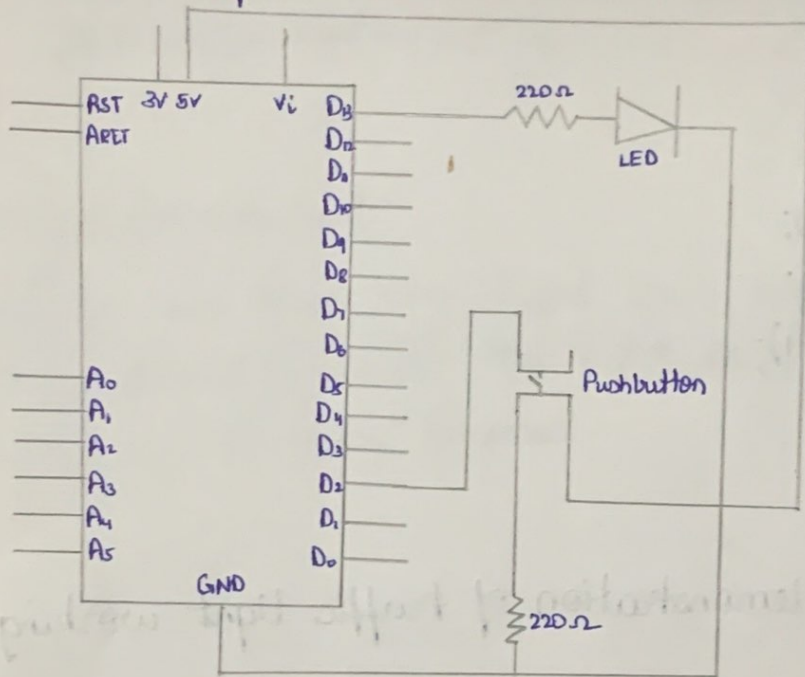 RST 3V 5V Vi D13
AREF D12
D11
D10
D9
D8
D7
D6
A0 D5
A1 D4
A2 D3
A3 D2
A4 D1
A5 D0
GND
220Ω
LED
Pushbutton
220Ω